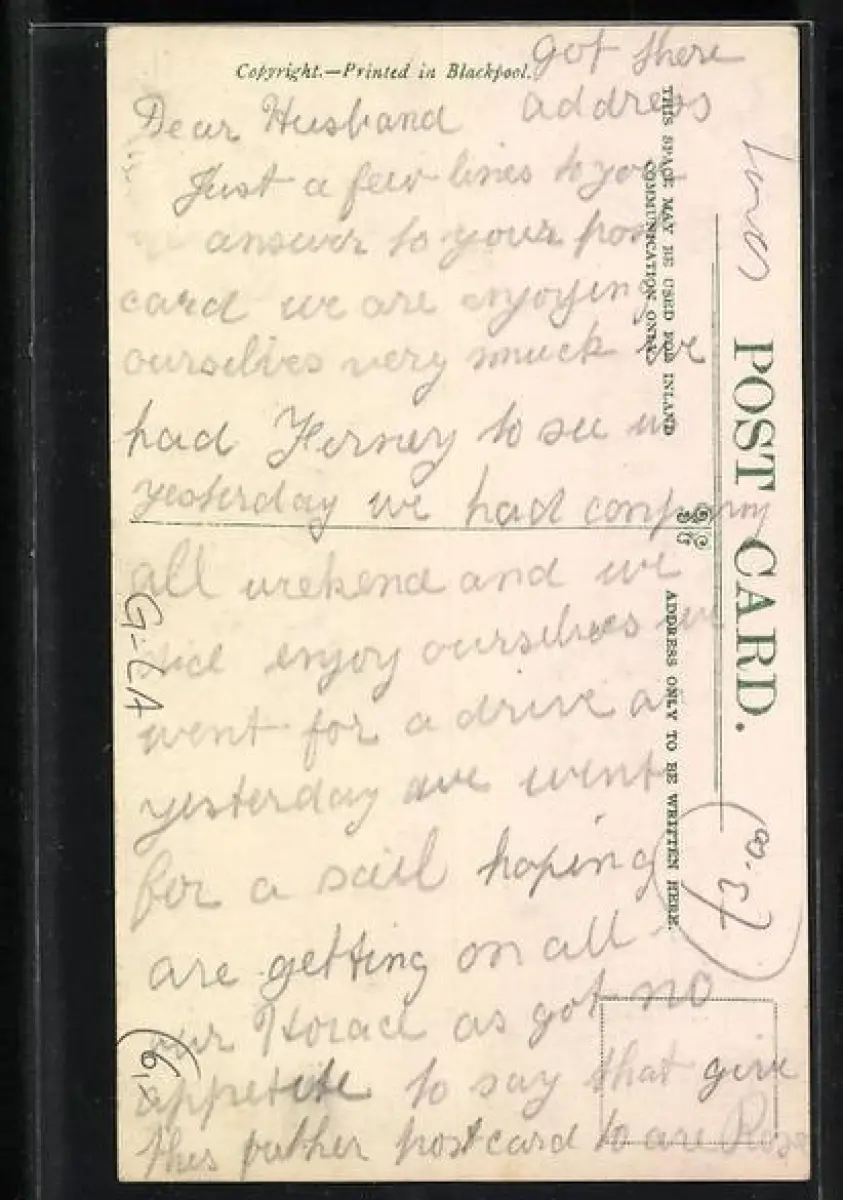 Copyright.—Printed in Blackpool.
got there
address
Dear Husband
Just a few lines to you
answer to your post
card we are enjoying
ourselves very much we
had Ferney to see us
yesterday we had company
all weekend and we
did enjoy ourselves we
went for a drive
yesterday we went
for a sail hoping
are getting on all
our Horace as got no
appetite to say that give
this puther postcard to are Rose
THIS SPACE MAY BE USED FOR INLAND
COMMUNICATION ONLY.
ADDRESS ONLY TO BE WRITTEN HERE.
POST CARD.